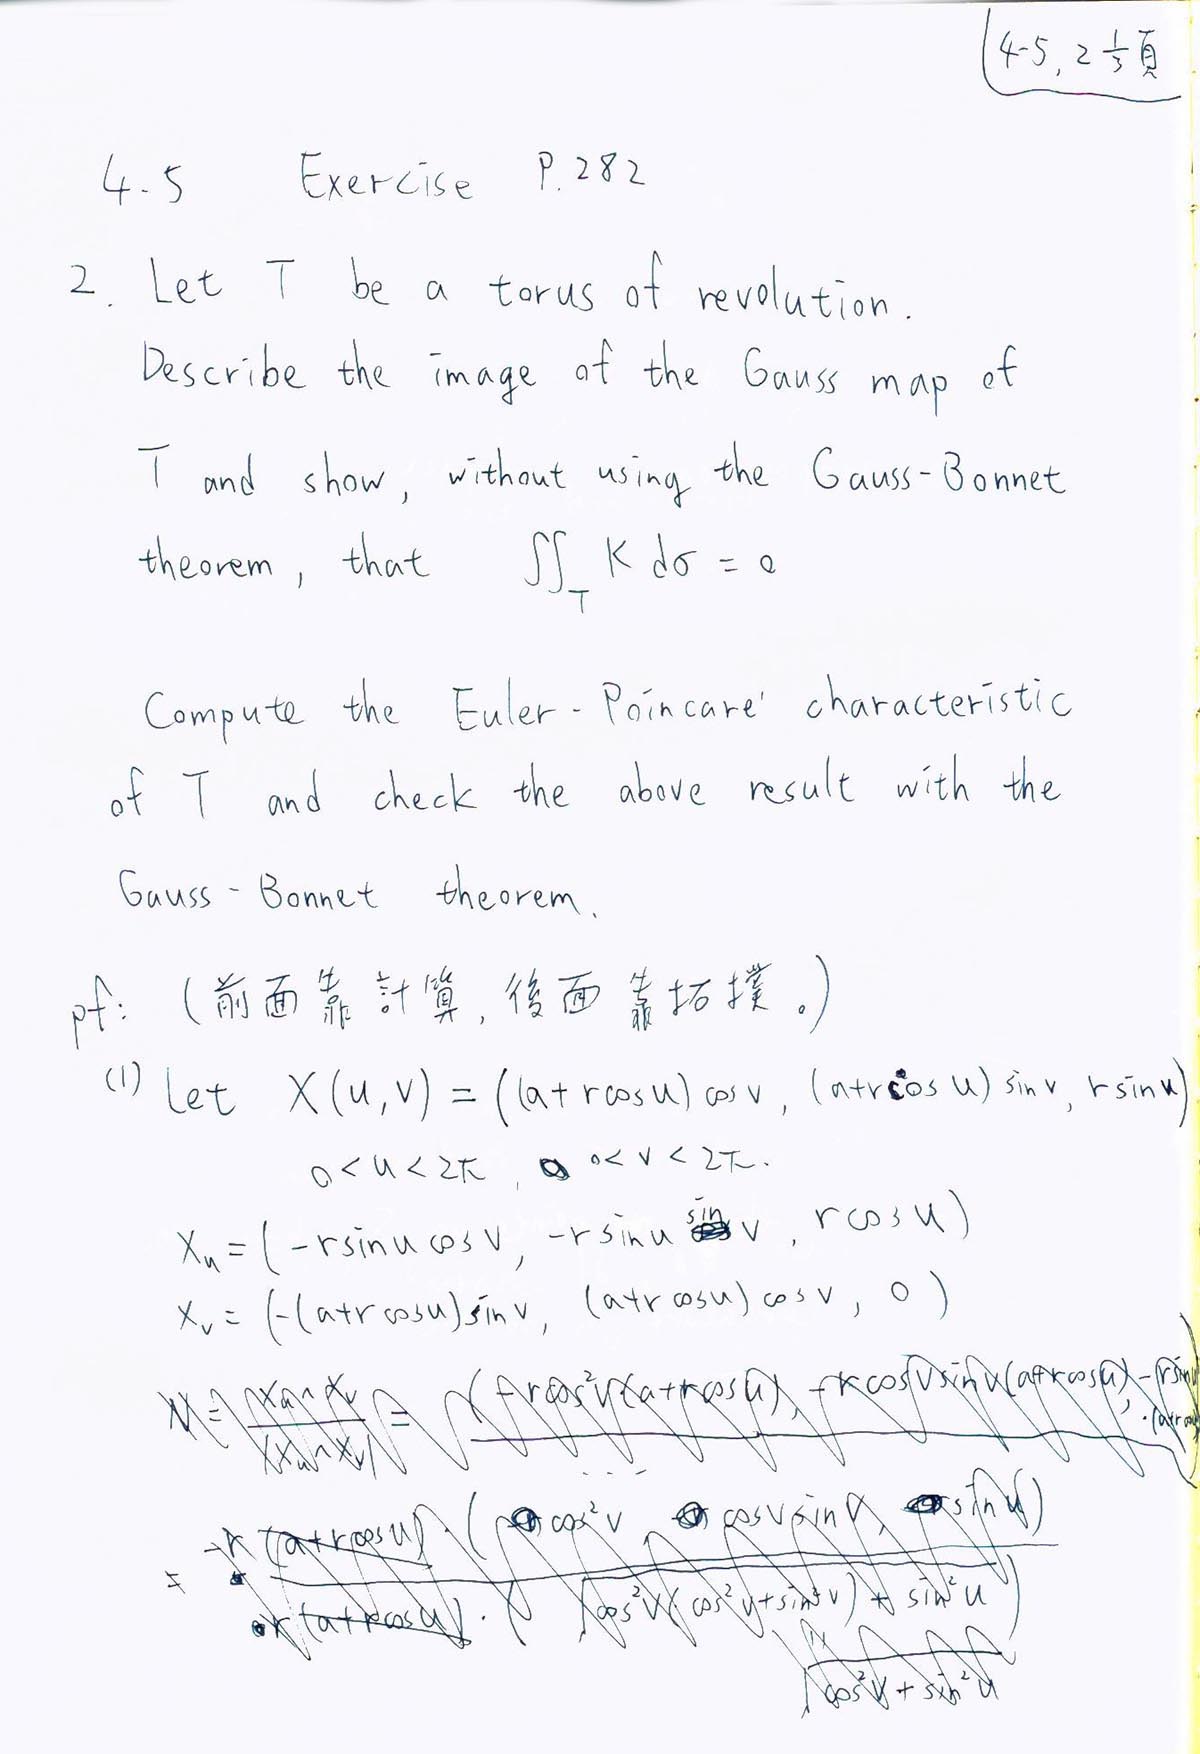 4-5, 2 1/3 頁
4-5 Exercise P.282
2. Let T be a torus of revolution.
Describe the image of the Gauss map of
T and show, without using the Gauss-Bonnet
theorem, that ∬_T K dσ = 0
Compute the Euler-Poincare' characteristic
of T and check the above result with the
Gauss-Bonnet theorem.
pf: (前面靠計算,後面靠拓撲。)
(1) Let X(u,v) = ((a+rcosu)cosv, (a+rcosu)sinv, rsinu)
0<u<2π, 0<v<2π.
X_u = (-rsinu cosv, -rsinu sin v, rcosu)
X_v = (-(a+rcosu)sinv, (a+rcosu)cosv, 0)